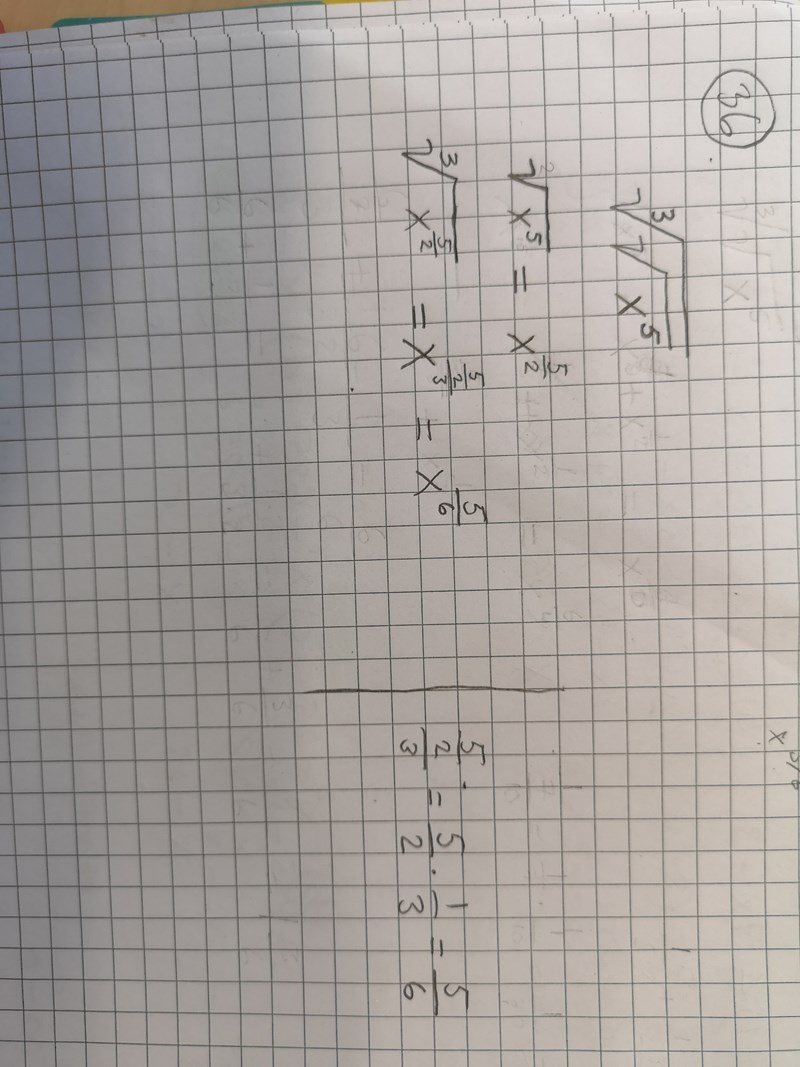 36
∛√x⁵
²√x⁵ = x^(5/2)
∛x^(5/2) = x^((5/2)/3) = x^(5/6)
(5/2)/3 = 5/2 · 1/3 = 5/6
x^5/6